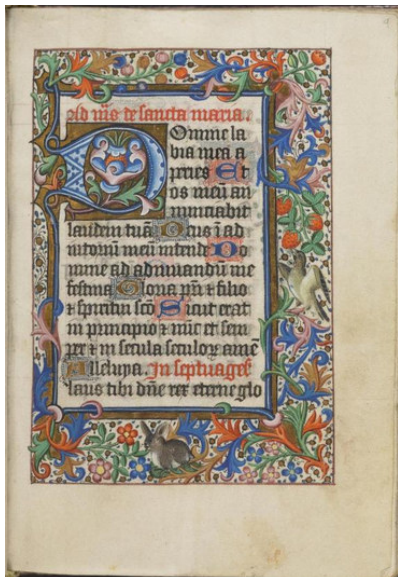 Old mo de sancta maria.
Domine la
bia mea a
peries Et
os meu an
nunciabit
laudem tuā Deus ī ad
iutoriū meū intende Do
mine ad adiuvandū me
festina Gloria pri & filio
& spiritui sco Sicut erat
in principio & nūc et sem
per & in secula seculorū amē
Alleluya. In septuages̄
laus tibi dn̄e rex eterne glo